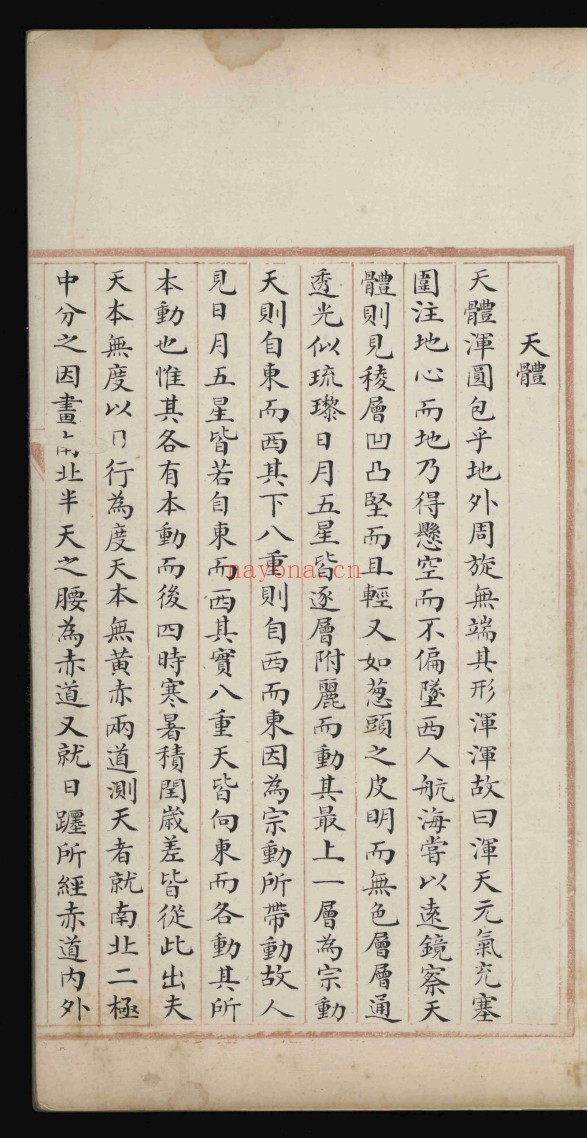 天體
天體渾圓包乎地外周旋無端其形渾渾故曰渾天元氣充塞
圍注地心而地乃得懸空而不偏墜西人航海嘗以遠鏡察天
體則見稜層凹凸堅而且輕又如葱頭之皮明而無色層層通
透光似琉璨日月五星皆逐層附麗而動其最上一層為宗動
天則自東而西其下八重則自西而東因為宗動所帶動故人
見日月五星皆若自東而西其實八重天皆向東而各動其所
本動也惟其各有本動而後四時寒暑積閏歲差皆從此出夫
天本無度以日行為度天本無黃赤兩道測天者就南北二極
中分之因畫南北半天之腰為赤道又就日躔所經赤道內外
nayona.cn